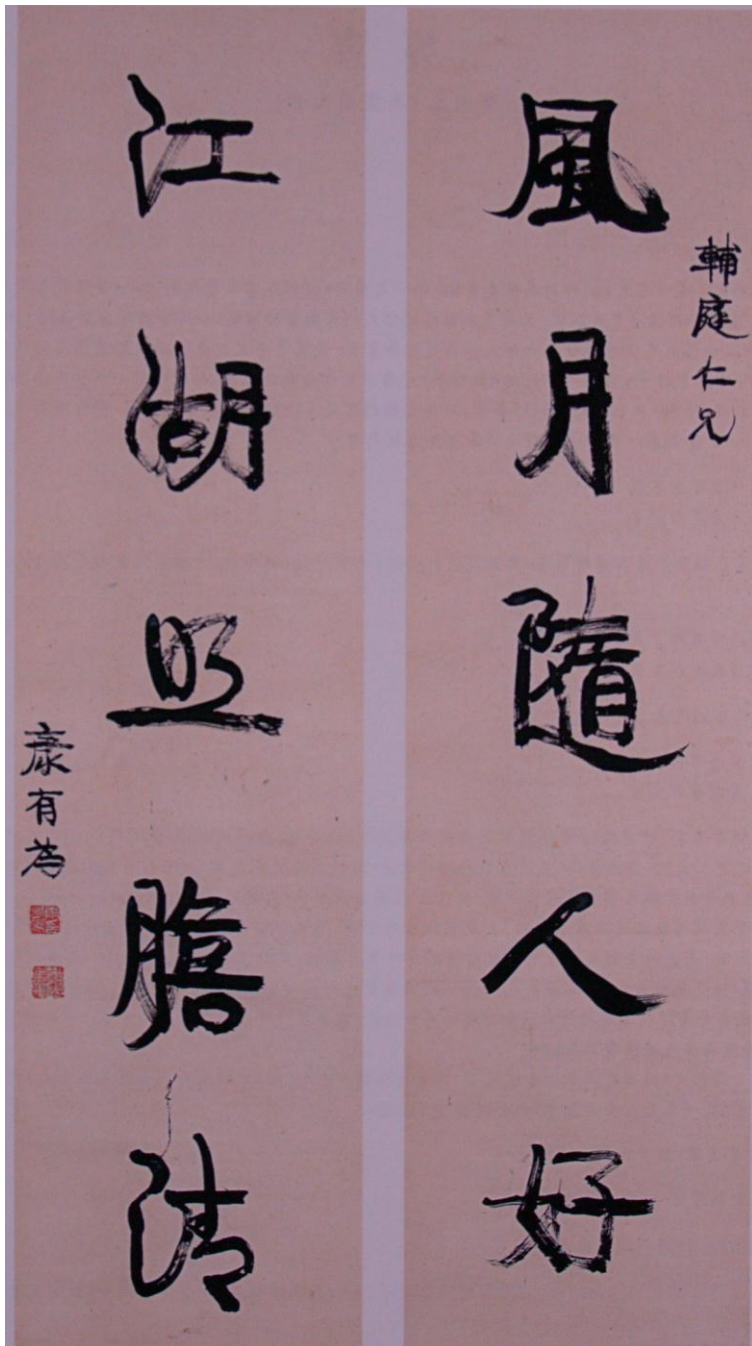 輔庭仁兄
風月隨人好
江湖照膽清
康有為